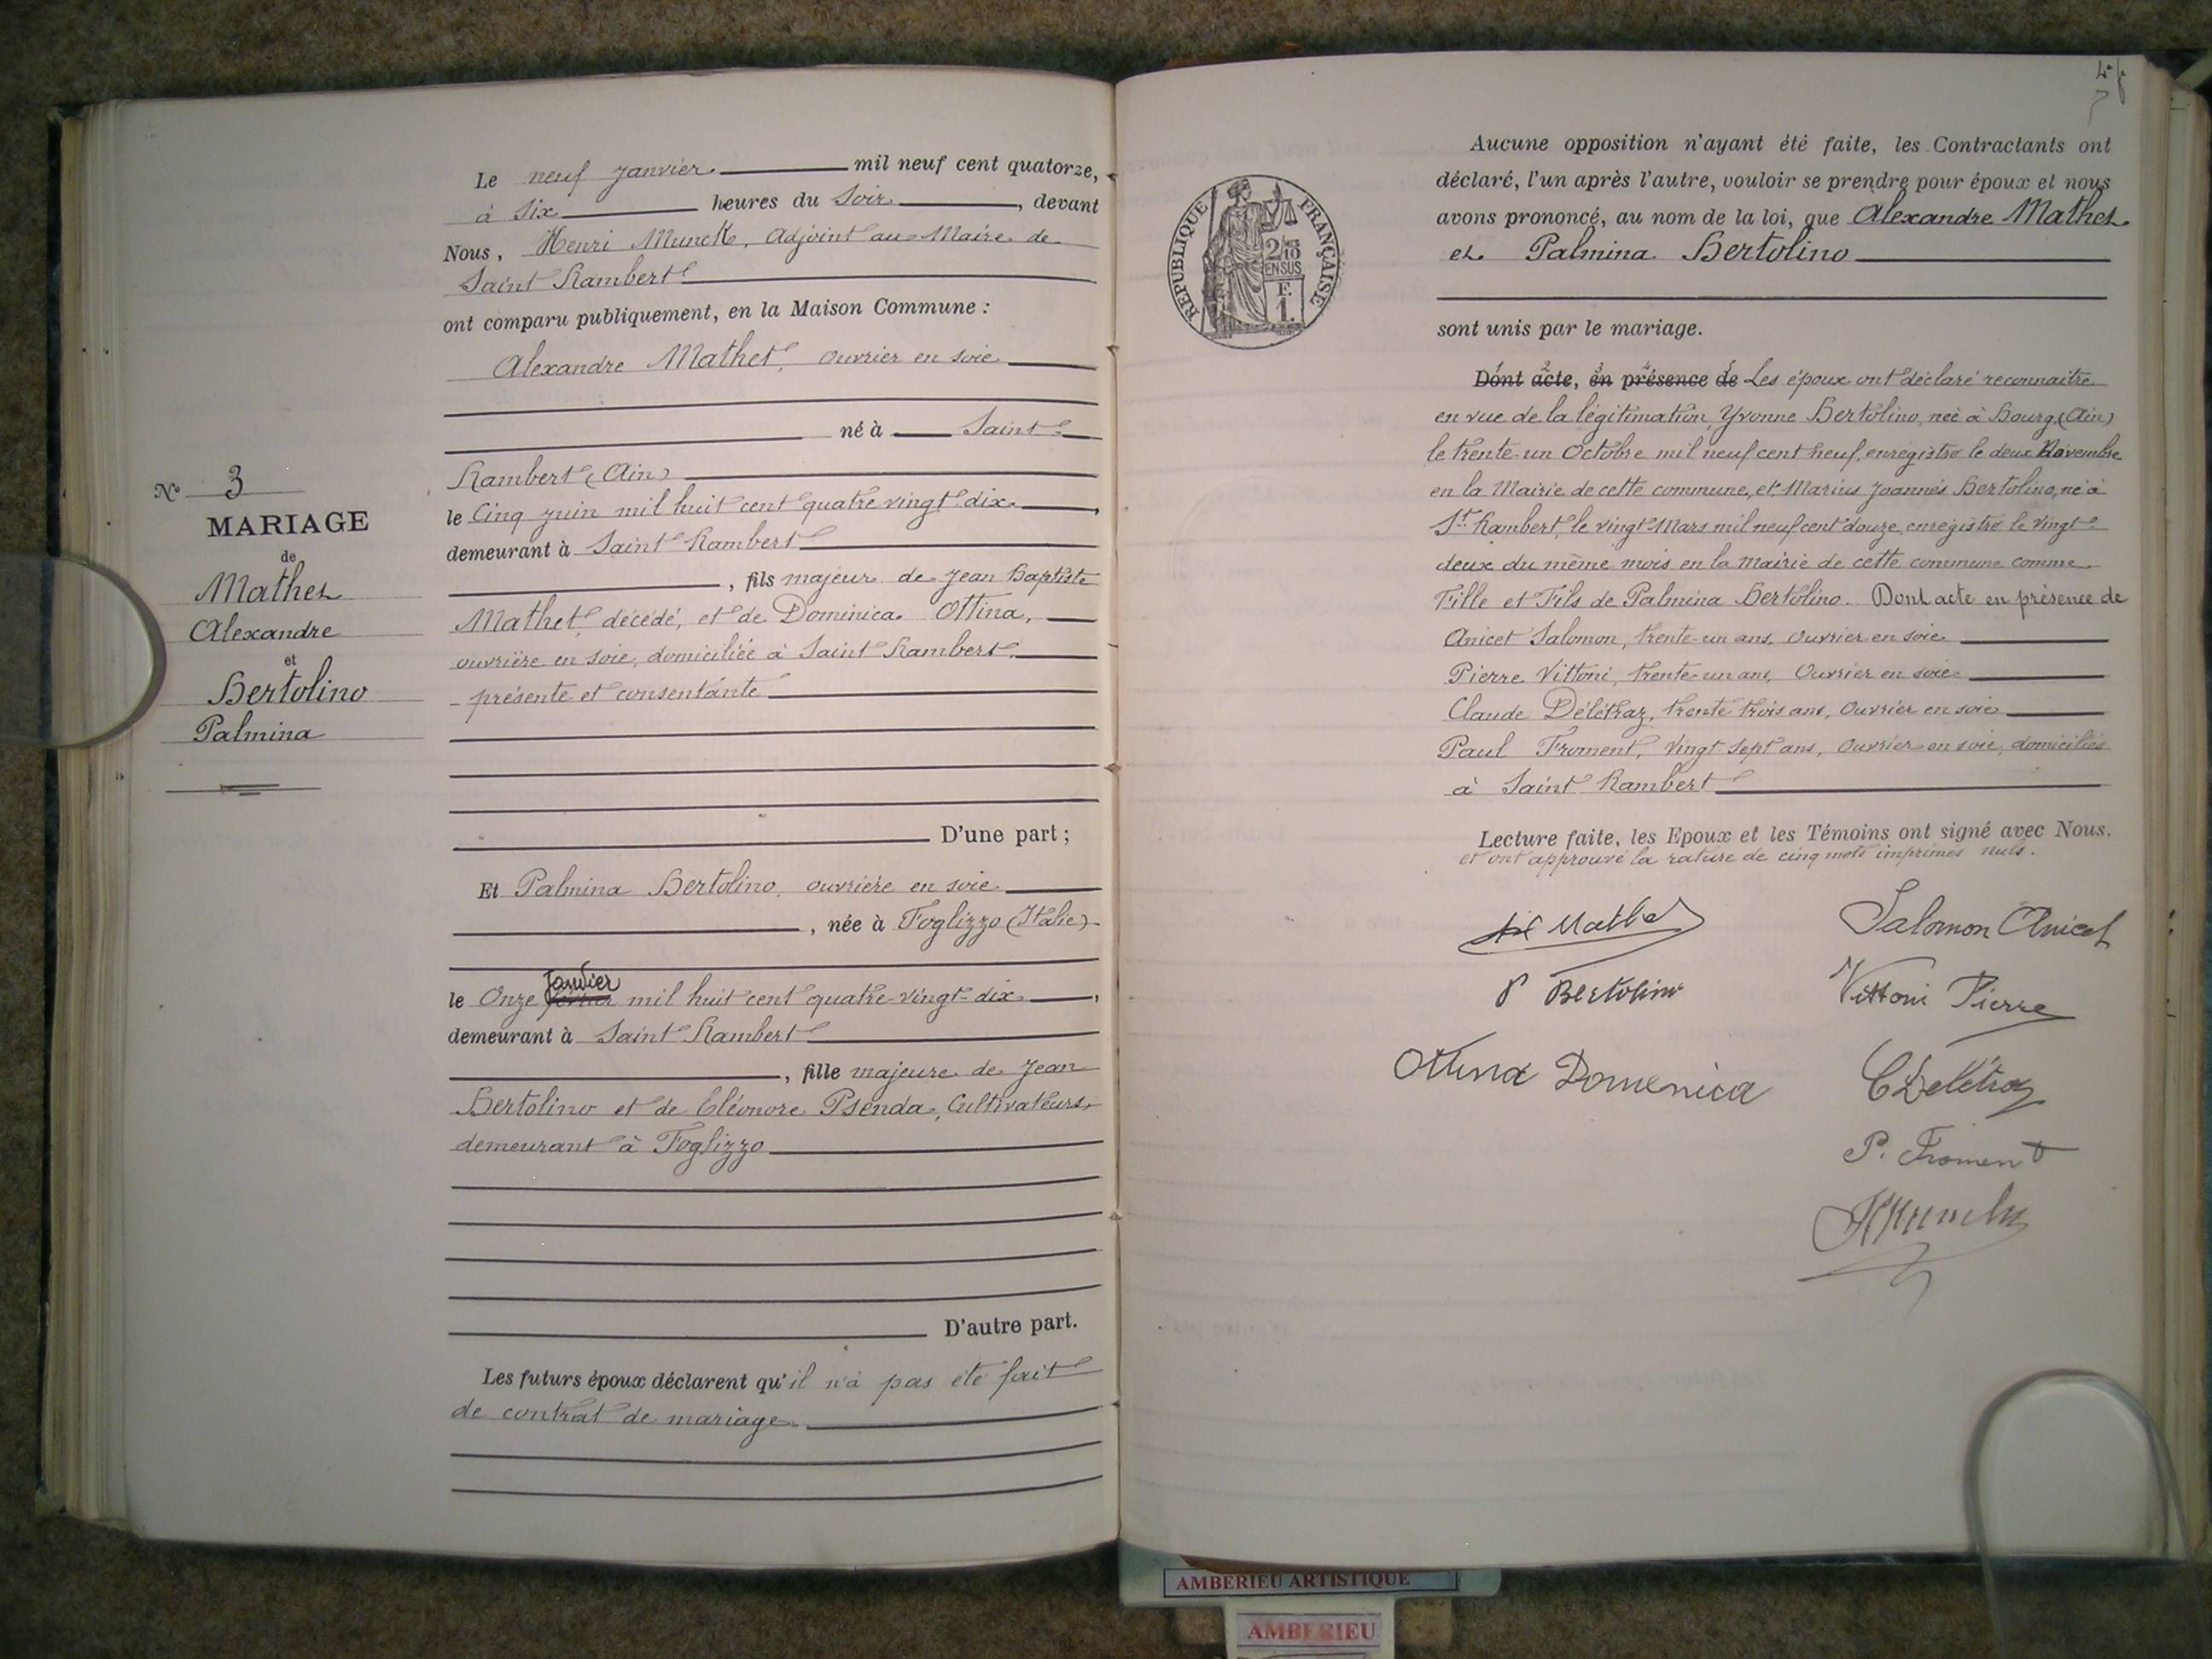 N° 3
MARIAGE
de
Mathet
Alexandre
et
Bertolino
Palmina
Le neuf Janvier mil neuf cent quatorze,
à Six heures du Soir, devant
Nous, Henri Munck, Adjoint au Maire de
Saint Rambert
ont comparu publiquement, en la Maison Commune :
Alexandre Mathet, ouvrier en soie
né à Saint-
Rambert (Ain)
le Cinq Juin mil huit cent quatre vingt dix,
demeurant à Saint Rambert
, fils majeur de Jean Baptiste
Mathet, décédé, et de Dominica Ottina,
ouvrière en soie, domiciliée à Saint Rambert,
présente et consentante
D'une part ;
Et Palmina Bertolino, ouvrière en soie
, née à Foglizzo (Italie)
Janvier
le Onze février mil huit cent quatre-vingt-dix,
demeurant à Saint Rambert
, fille majeure de Jean
Bertolino et de Eléonore Psenda, Cultivateurs,
demeurant à Foglizzo
D'autre part.
Les futurs époux déclarent qu'il n'a pas été fait
de contrat de mariage
REPUBLIQUE FRANÇAISE
2/10 MES
EN SUS
F.
1.
Aucune opposition n'ayant été faite, les Contractants ont
déclaré, l'un après l'autre, vouloir se prendre pour époux et nous
avons prononcé, au nom de la loi, que Alexandre Mathet
et Palmina Bertolino
sont unis par le mariage.
Dont acte, en présence de Les époux ont déclaré reconnaitre
en vue de la légitimation, Yvonne Bertolino, née à Bourg (Ain)
le trente-un Octobre mil neuf cent neuf, enregistré le deux Novembre
en la Mairie de cette commune, et Marius Joannès Bertolino, né à
St. Rambert, le vingt Mars mil neuf cent douze, enregistré le vingt-
deux du même mois en la mairie de cette commune comme
Fille et Fils de Palmina Bertolino. Dont acte en présence de
Anicet Salomon, trente-un ans, Ouvrier en soie
Pierre Vittoni, trente-un ans, Ouvrier en soie
Claude Délétraz, trente trois ans, Ouvrier en soie
Paul Froment, vingt sept ans, Ouvrier en soie, domiciliés
à Saint Rambert
Lecture faite, les Epoux et les Témoins ont signé avec Nous.
et ont approuvé la rature de cinq mots imprimés nuls.
Mathet
Salomon Anicet
P Bertolino
Vittoni Pierre
Ottina Domenica
C Delétraz
P. Froment
HMunck
AMBERIEU ARTISTIQUE
AMBERIEU